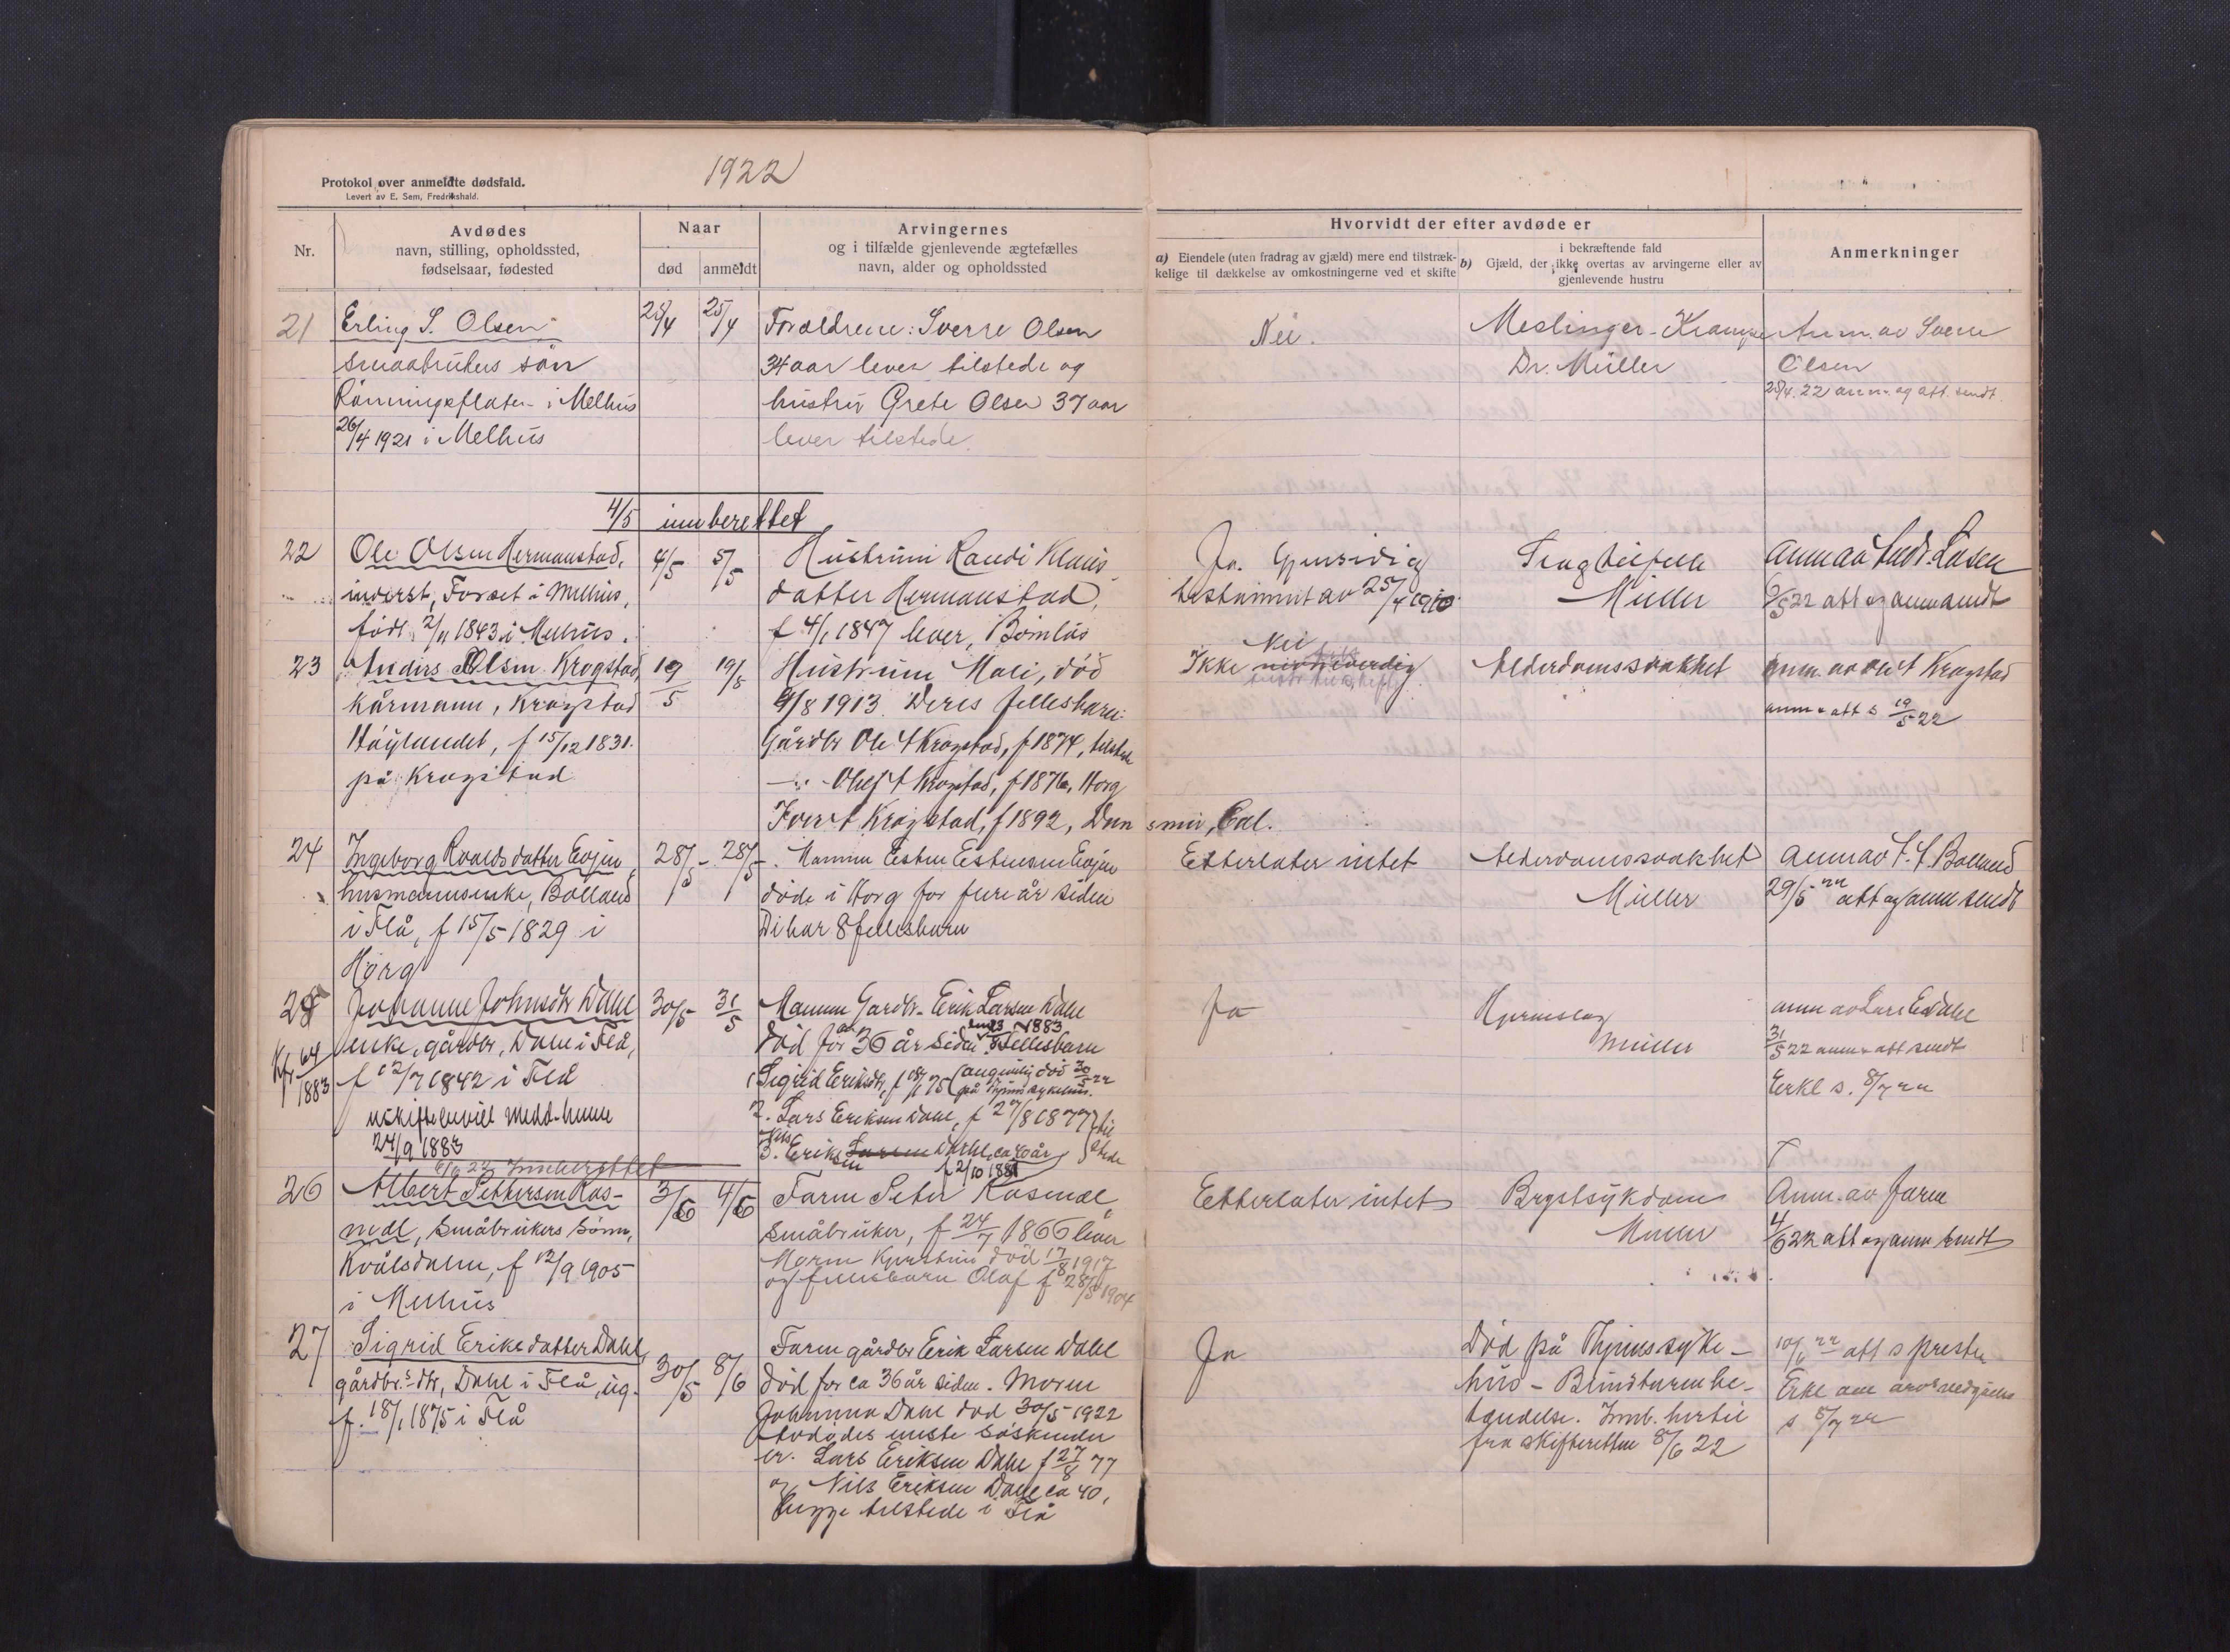 1922
Protokol over anmeldte dødsfald.
Levert av E. Sem, Fredrikshald.
Nr.
Avdødes
navn, stilling, opholdssted,
fødselsaar, fødested
Naar
død
anmeldt
Arvingernes
og i tilfælde gjenlevende ægtefælles
navn, alder og opholdssted
Hvorvidt der efter avdøde er
a) Eiendele (uten fradrag av gjæld) mere end tilstræk-
kelige til dækkelse av omkostningerne ved et skifte
i bekræftende fald
b) Gjæld, der ikke overtas av arvingerne eller av
gjenlevende hustru
Anmerkninger
21
Erling S. Olsen
smaabrukers søn
Rønningsflaten i Melhus
26/4 1921 i Melhus
25/4
25/4
Forældrene: Sverre Olsen
34 aar lever tilstede og
hustru Grete Olsen 37 aar
lever tilstede.
Nei.
Meslinger - Krampe
Dr. Müller
Anm. av Sverre
Olsen
25/4.22 anm. og att. sendt.
4/5 innberettet
22
Ole Olsen Hermanstad,
inderst, Forset i Melhus,
født 2/11 1843 i Melhus.
4/5
5/5
Hustruen Randi Klaus
datter Hermanstad,
f 4/1 1847 lever, Bømlus
Ja. Gjensidig
testament av 25/4 1910
Slagtilfelle
Müller
5/5 22 att og anm sendt
23
Anders Olsen Krogstad,
kårmann, Krogstad
Høylandet, f 15/12 1831.
på Krogstad
19/5
19/5
Hustruen Mali, død
4/8 1913. Deres fellesbarn:
Gårdbr Ole A Krogstad, f 1874, tilstede
-"- Olaf A Krogstad, f 1876, Horg
Iver A Krogstad, f 1892, Dun smuir, Cal.
Nei
Ikke
Alderdomssvakhet
anm. av Ole A Krogstad
anm + att s 19/5 22
24
Ingeborg Roaldsdatter Evjen,
husmannsenke, Bolland
i Flå, f 15/5 1829 i
Horg
28/5
28/5
Mannen Esten Estensen Evjen
døde i Horg for flere år siden
Di har 8 fellesbarn
Etterlater intet
Alderdomssvakhet
Müller
anm av Bolland
29/5 22 att og anm sendt
25
Kfr 64/1883
Johanne Johnsdtr Dahl
enke, gårdbr, Dahl i Flå,
f 12/7 1842 i Flå
uskiftebevill medd. henne
24/9 1883
30/5
31/5
Mannen Gardbr. Erik Larsen Dahl
død for 36 år siden. 1883 Fellesbarn
1 Sigrid Eriksdtr, f 18/1 75 (angivelig død 30/5 22
på Thjems sykehus.
2. Lars Eriksen Dahl, f 27/8 1877
3. Nils Eriksen Larsen Dahl, ca 40 år
f 2/10 1881
tilstede
Ja
Hjerneslag
Müller
anm av Lars E Dahl
31/5 22 anm + att sendt
Erkl s. 8/7 22
6/6 22 Innberettet
26
Albert Pettersen Ros-
nedl, småbrukers sønn,
Kvålsdalen, f 12/9 1905
i Melhus
3/6
4/6
Faren Peter
småbruker, f 24/7 1866 lever
Moren Kjerstine død 17/8 1917
og fellesbarn Olaf f 28/5 1904
Etterlater intet
Brystsykdom
Müller
Anm. av faren
4/6 22 att og anm sendt
27
Sigrid Eriksdatter Dahl,
gårdbr.s dtr, Dahl i Flå, ug.
f. 18/1 1875 i Flå
30/5
8/6
Faren gårdbr Erik Larsen Dahl
død for ca 36 år siden. Moren
Johanna Dahl død 30/5 1922
Avdødes eneste søskender
er: Lars Eriksen Dahl f 27/8 77
og Nils Eriksen Dahl ca 40,
begge tilstede i Flå
Ja
Død på Thjems syke-
hus - Blindtarmbe-
tendelse. Innb. hertil
fra skifteretten 8/6 22
10/6 22 att s presten
Erkl om arvevedgåelse
s 8/7 22